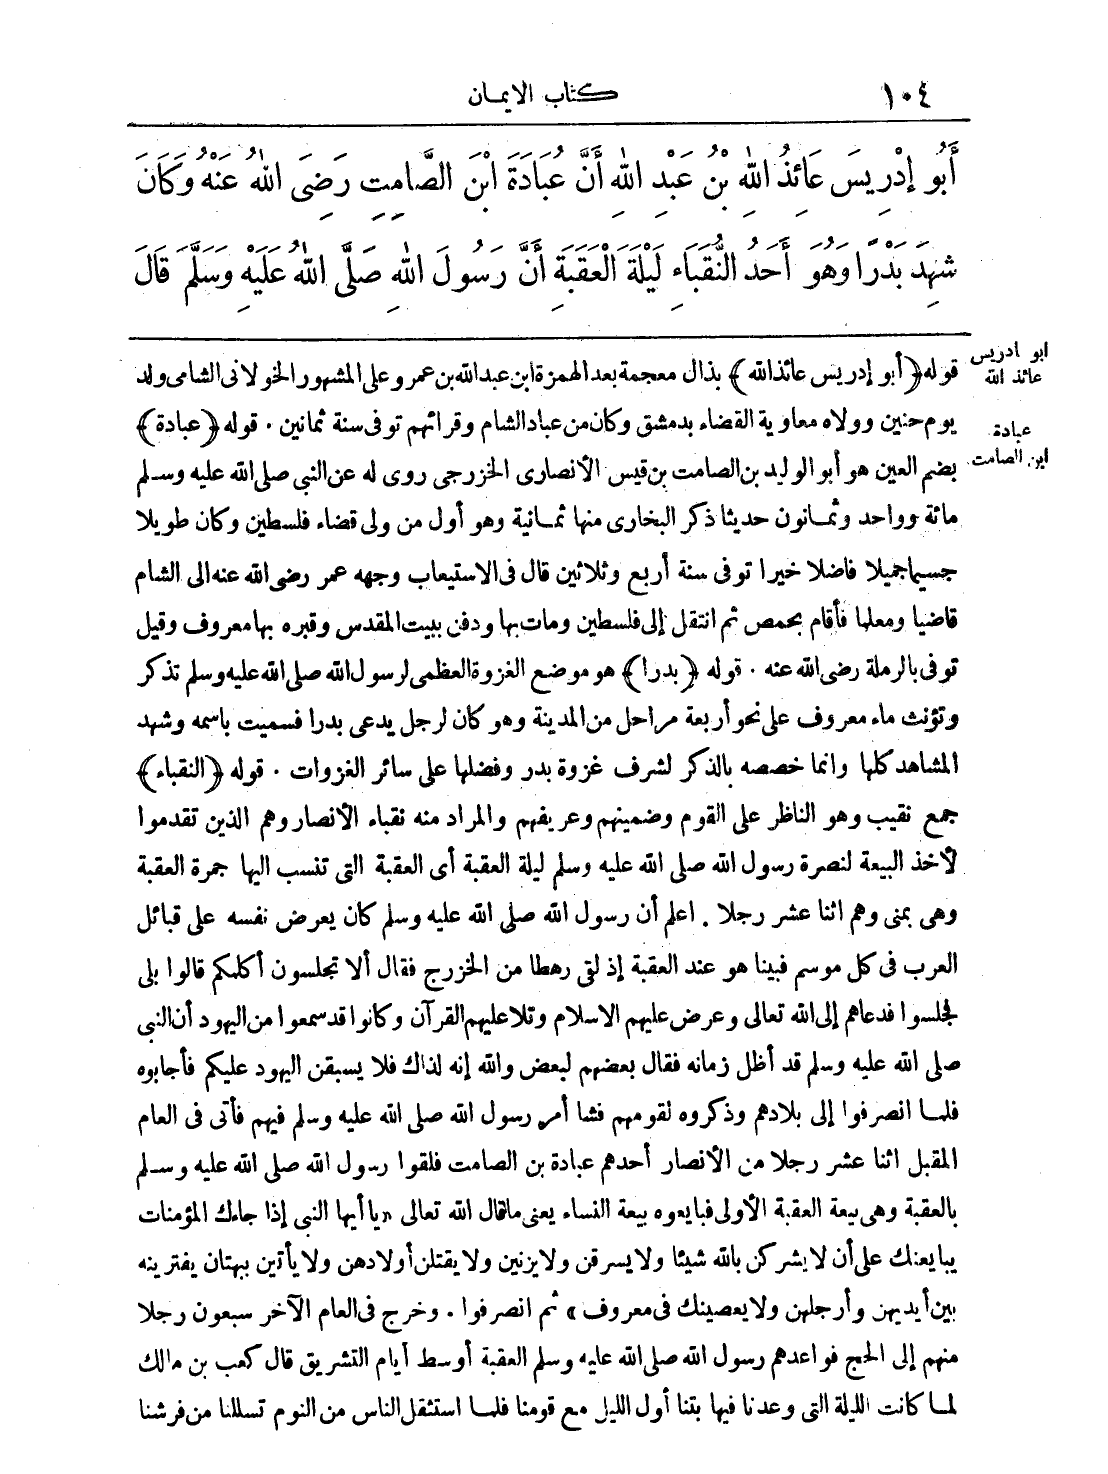 ١٠٤ كتاب الايمان
أَبُو إِدْرِيسَ عَائِذُ اللهِ بْنُ عَبْدِ اللهِ أَنَّ عُبَادَةَ ابْنَ الصَّامِتِ رَضِىَ اللهُ عَنْهُ وَكَانَ
شَهِدَ بَدْرًا وَهُوَ أَحَدُ النُّقَبَاءِ لَيْلَةَ الْعَقَبَةِ أَنَّ رَسُولَ اللهِ صَلَّى اللهُ عَلَيْهِ وَسَلَّمَ قَالَ
ابو ادريس
عائذ الله
عبادة
ابن الصامت
قوله ﴿أبو إدريس عائذ الله﴾ بذال معجمة بعد الهمزة ابن عبد الله بن عمرو على المشهور الخولانى الشامى ولد
يوم حنين وولاه معاوية القضاء بدمشق وكان من عباد الشام وقرائهم توفى سنة ثمانين . قوله ﴿عبادة﴾
بضم العين هو أبو الوليد بن الصامت بن قيس الأنصارى الخزرجى روى له عن النبى صلى الله عليه وسلم
مائة وواحد وثمانون حديثا ذكر البخارى منها ثمانية وهو أول من ولى قضاء فلسطين وكان طويلا
جسيما جميلا فاضلا خيرا توفى سنة أربع وثلاثين قال فى الاستيعاب وجهه عمر رضى الله عنه الى الشام
قاضيا ومعلما فأقام بحمص ثم انتقل إلى فلسطين ومات بها ودفن ببيت المقدس وقبره بها معروف وقيل
توفى بالرملة رضى الله عنه . قوله ﴿بدرا﴾ هو موضع الغزوة العظمى لرسول الله صلى الله عليه وسلم تذكر
وتؤنث ماء معروف على نحو أربعة مراحل من المدينة وهو كان لرجل يدعى بدرا فسميت باسمه وشهد
المشاهد كلها وانما خصصه بالذكر لشرف غزوة بدر وفضلها على سائر الغزوات . قوله ﴿النقباء﴾
جمع نقيب وهو الناظر على القوم وضمينهم وعريفهم والمراد منه نقباء الأنصار وهم الذين تقدموا
لأخذ البيعة لنصرة رسول الله صلى الله عليه وسلم ليلة العقبة أى العقبة التى تنسب اليها جمرة العقبة
وهى بمنى وهم اثنا عشر رجلا . اعلم أن رسول الله صلى الله عليه وسلم كان يعرض نفسه على قبائل
العرب فى كل موسم فبينا هو عند العقبة إذ لقى رهطا من الخزرج فقال ألا تجلسون أكلمكم قالوا بلى
فجلسوا فدعاهم إلى الله تعالى وعرض عليهم الاسلام وتلا عليهم القرآن وكانوا قد سمعوا من اليهود أن النبى
صلى الله عليه وسلم قد أظل زمانه فقال بعضهم لبعض والله إنه لذاك فلا يسبقن اليهود عليكم فأجابوه
فلما انصرفوا إلى بلادهم وذكروه لقومهم فشا أمر رسول الله صلى الله عليه وسلم فيهم فأتى فى العام
المقبل اثنا عشر رجلا من الأنصار أحدهم عبادة بن الصامت فلقوا رسول الله صلى الله عليه وسلم
بالعقبة وهى بيعة العقبة الأولى فبايعوه بيعة النساء يعنى ما قال الله تعالى «يا أيها النبى إذا جاءك المؤمنات
يبايعنك على أن لا يشركن بالله شيئا ولا يسرقن ولا يزنين ولا يقتلن أولادهن ولا يأتين ببهتان يفترينه
بين أيديهن وأرجلهن ولا يعصينك فى معروف» ثم انصرفوا . وخرج فى العام الآخر سبعون رجلا
منهم إلى الحج فواعدهم رسول الله صلى الله عليه وسلم العقبة أوسط أيام التشريق قال كعب بن مالك
لما كانت الليلة التى وعدنا فيها بتنا أول الليل مع قومنا فلما استثقل الناس من النوم تسللنا من فرشنا